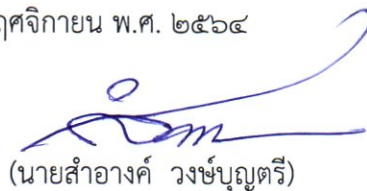 ฤศจิกายน พ.ศ. ๒๕๖๔
(นายสำอางค์ วงษ์บุญตรี)